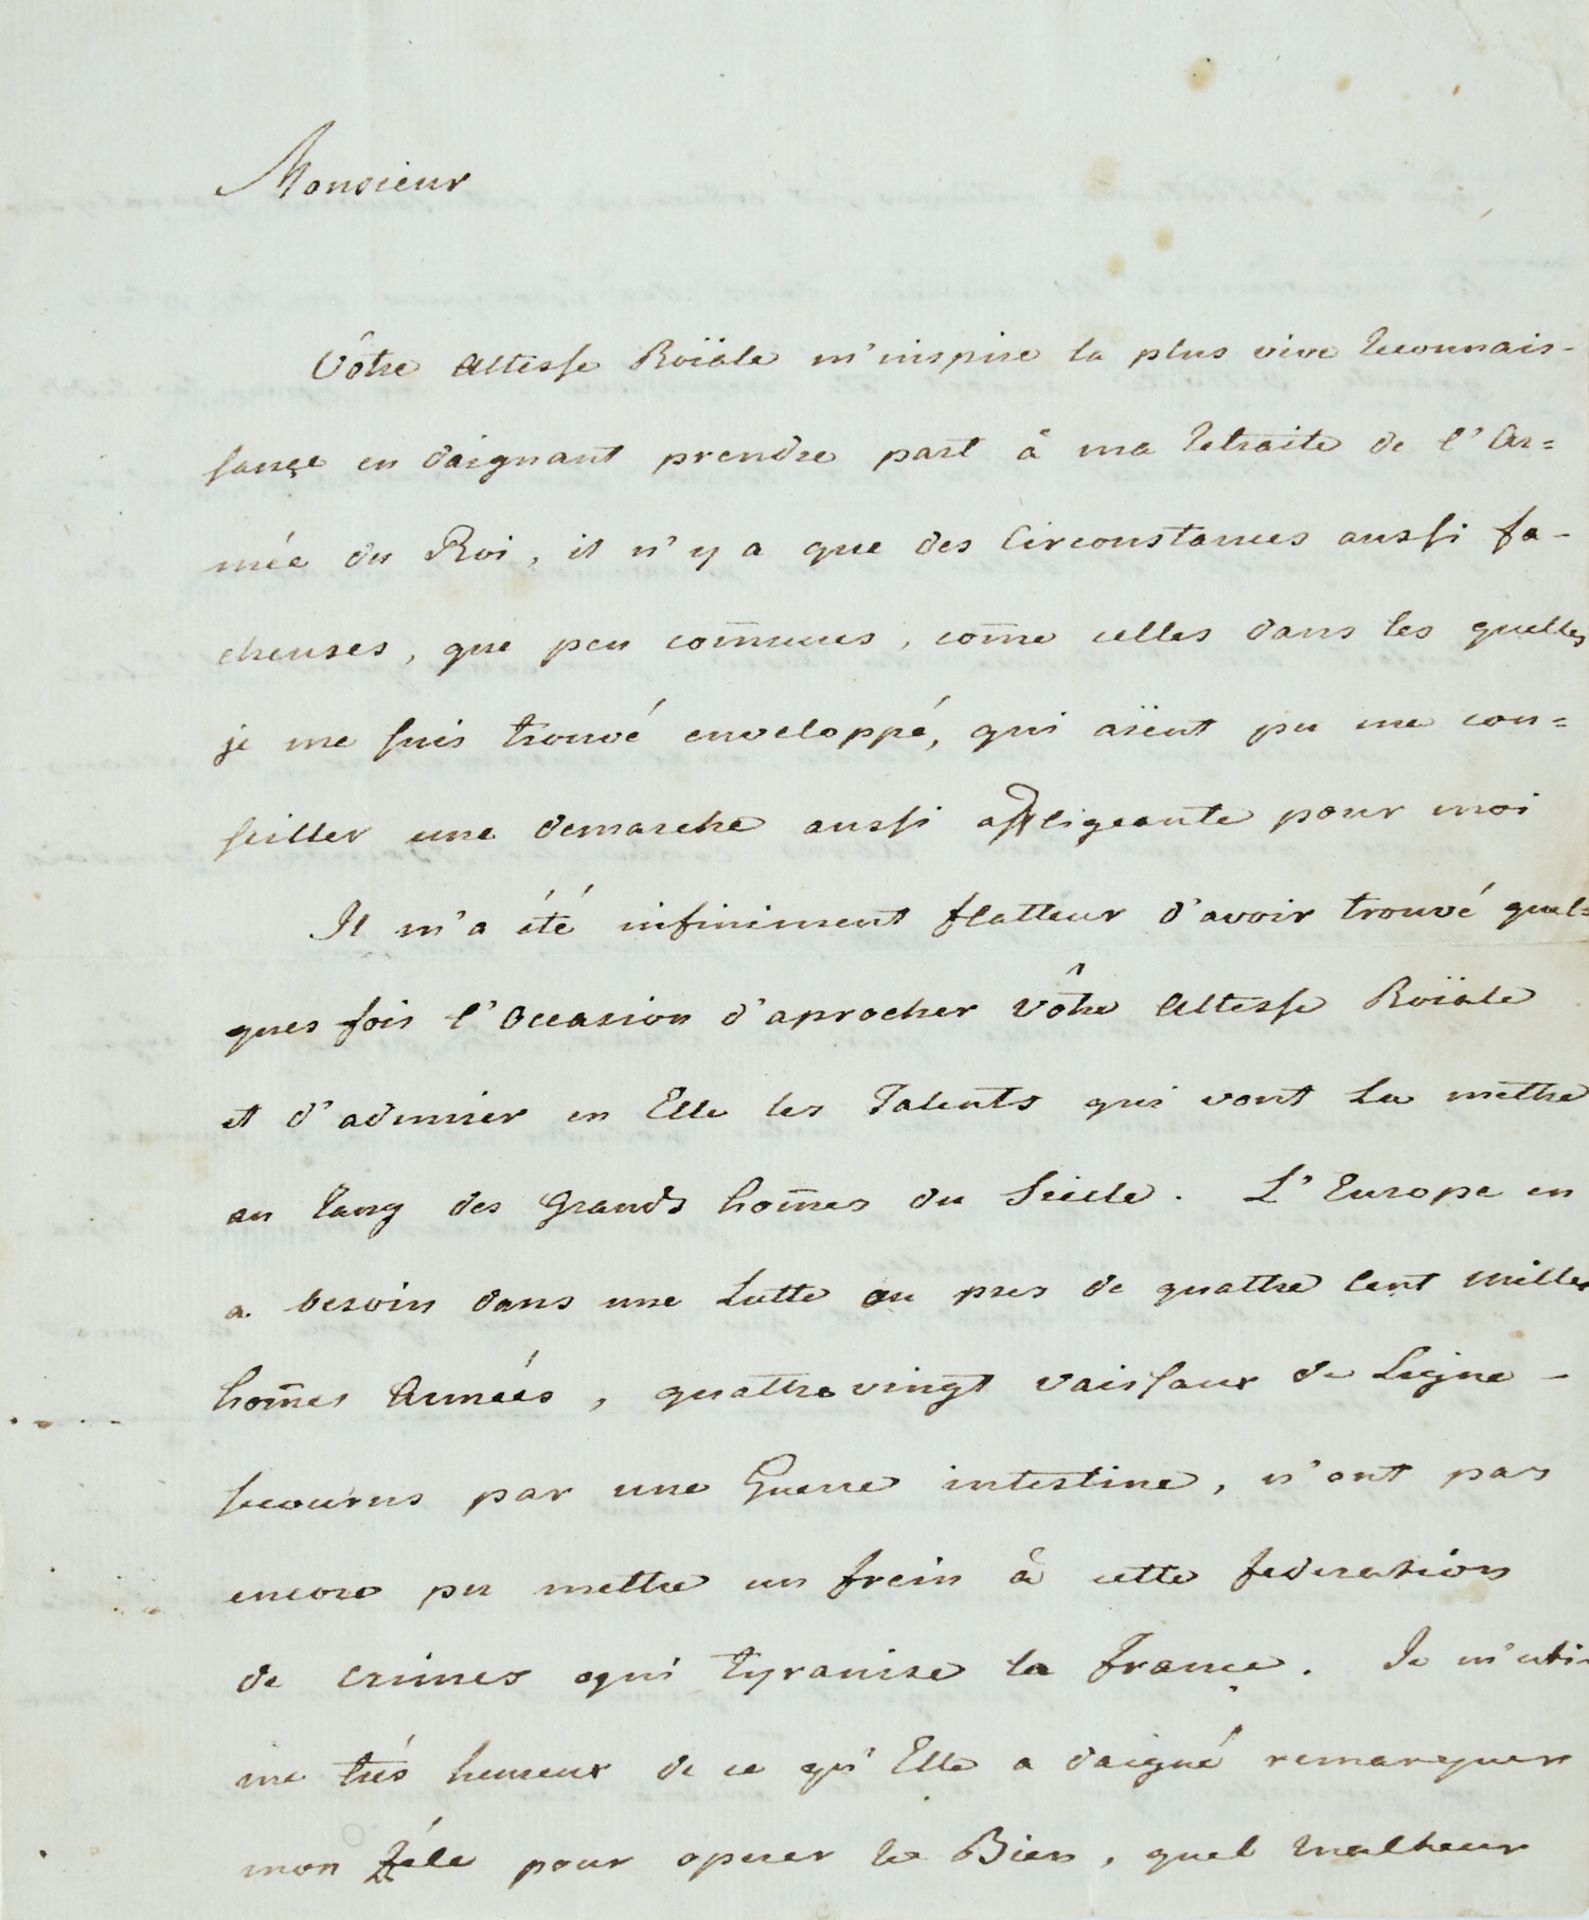 Monsieur
Vôtre Altesse Roïale m'inspire la plus vive reconnais-
sançe en daignant prendre part à ma retraite de l'Ar=
mée du Roi, il n'y a que des Circonstances aussi fa-
cheuses, que peu com̄unes, com̄e celles dans les quelles
je me suis trouvé enveloppé, qui aïent pu me con=
seiller une demarche aussi affligeante pour moi
Il m'a été infiniment flatteur d'avoir trouvé quel=
ques fois l'Occasion d'aprocher Vôtre Altesse Roïale
et d'admirer en Elle les Talents qui vont La mettre
au rang des Grands hom̄es du Siècle. L'Europe en
a besoin dans une Lutte ou pres de quattre Cent Milles
hom̄es Armées, quattre vingt Vaissaux de Ligne -
secourus par une Guerre intestine, n'ont pas
encore pu mettre un frein à cette federation
de crimes qui tyranise la France. Je m'esti-
me trés heureux de ce qu'Elle a daigné remarquer
mon Zéle pour operer le Bien, quel Malheur